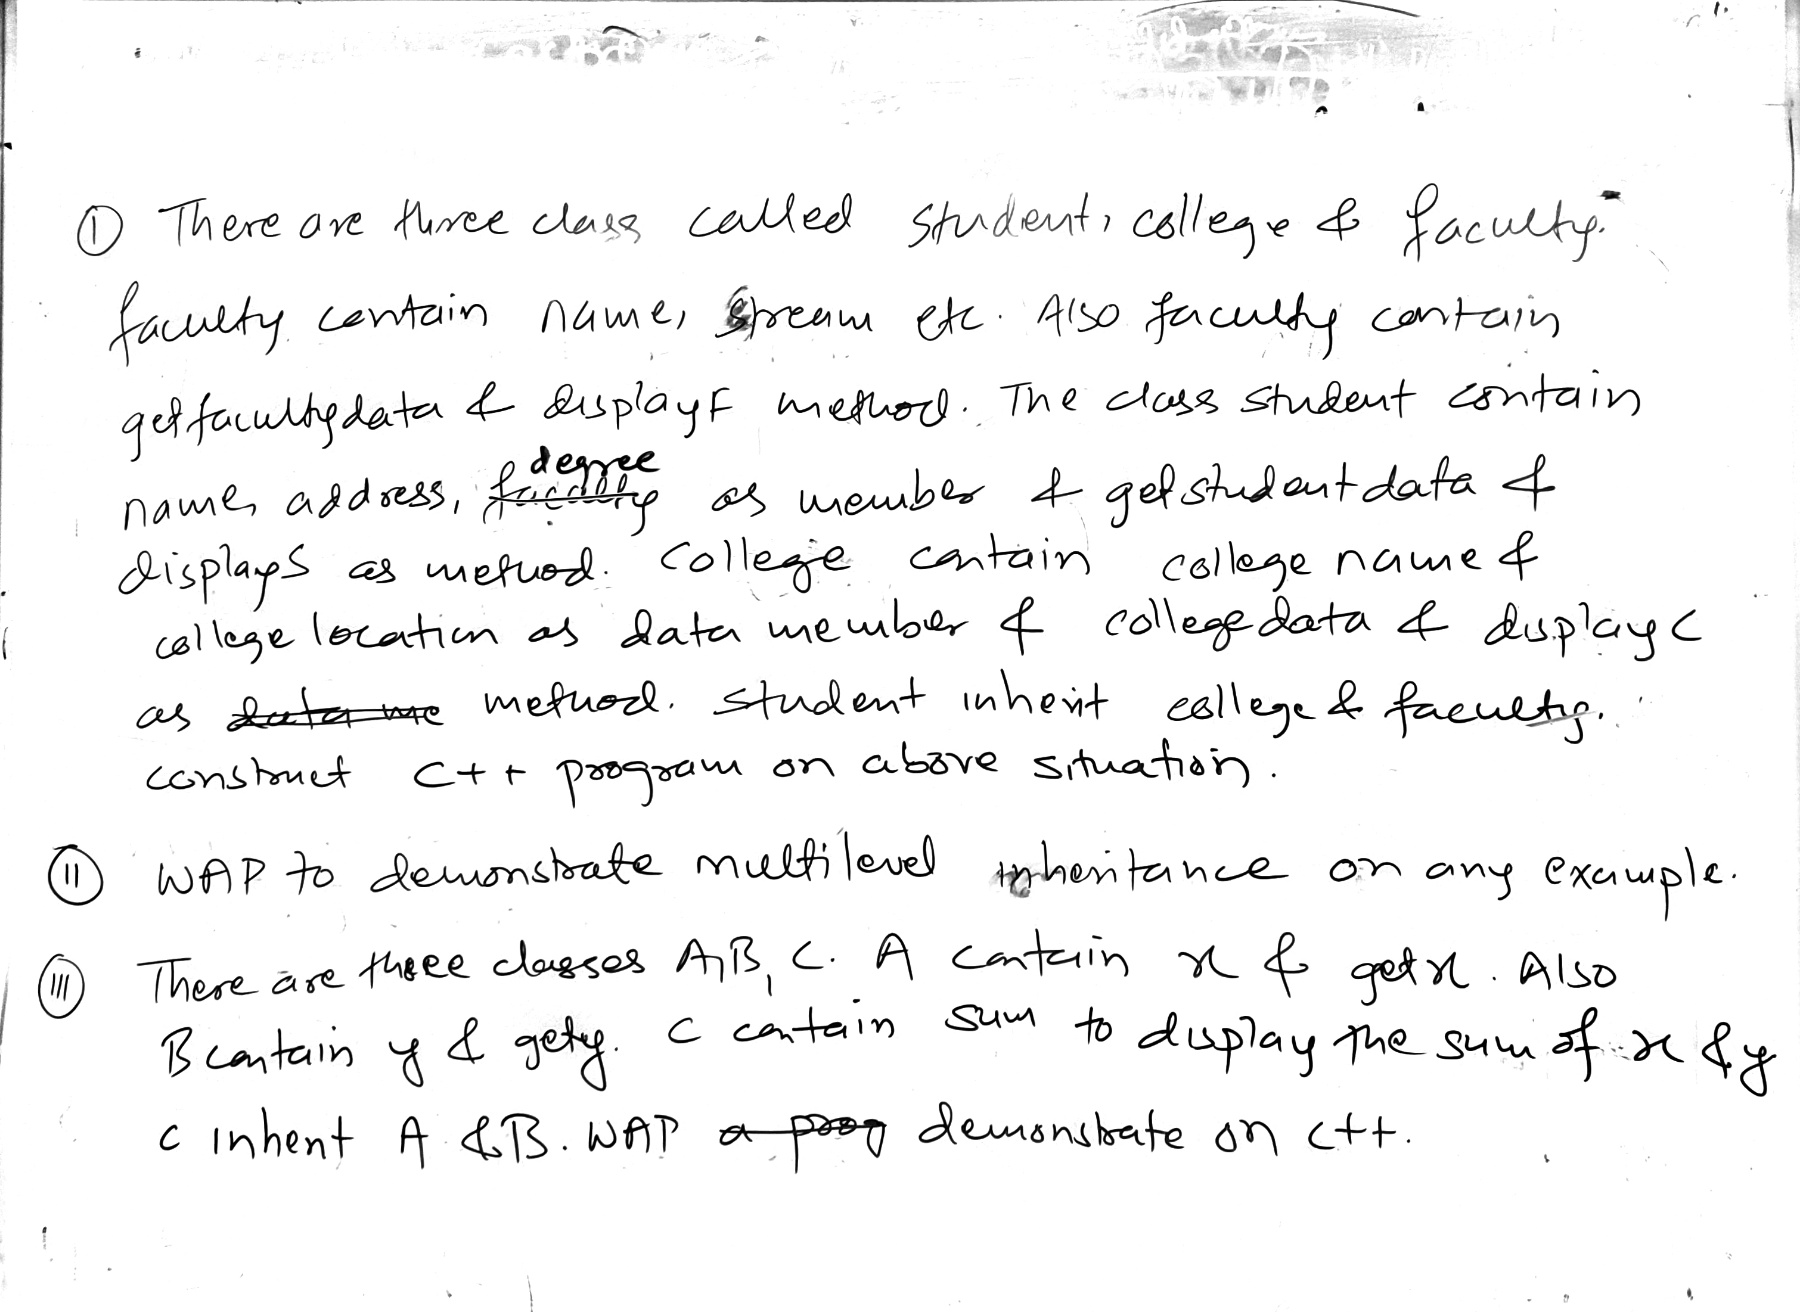 ① There are three class called student, college & faculty.
faculty contain name, stream etc. Also faculty contain
getfacultydata & displayF method. The class student contain
name, address, degree as member & getstudentdata &
displayS as method. College contain college name &
college location as data member & collegedata & displayC
as method. student inherit college & faculty.
construct C++ program on above situation.
⑪ WAP to demonstrate multilevel inheritance on any example.
⑪I There are three classes A, B, C. A contain x & getx. Also
B contain y & gety. C contain sum to display the sum of x & y
C inherit A & B. WAP demonstrate on C++.